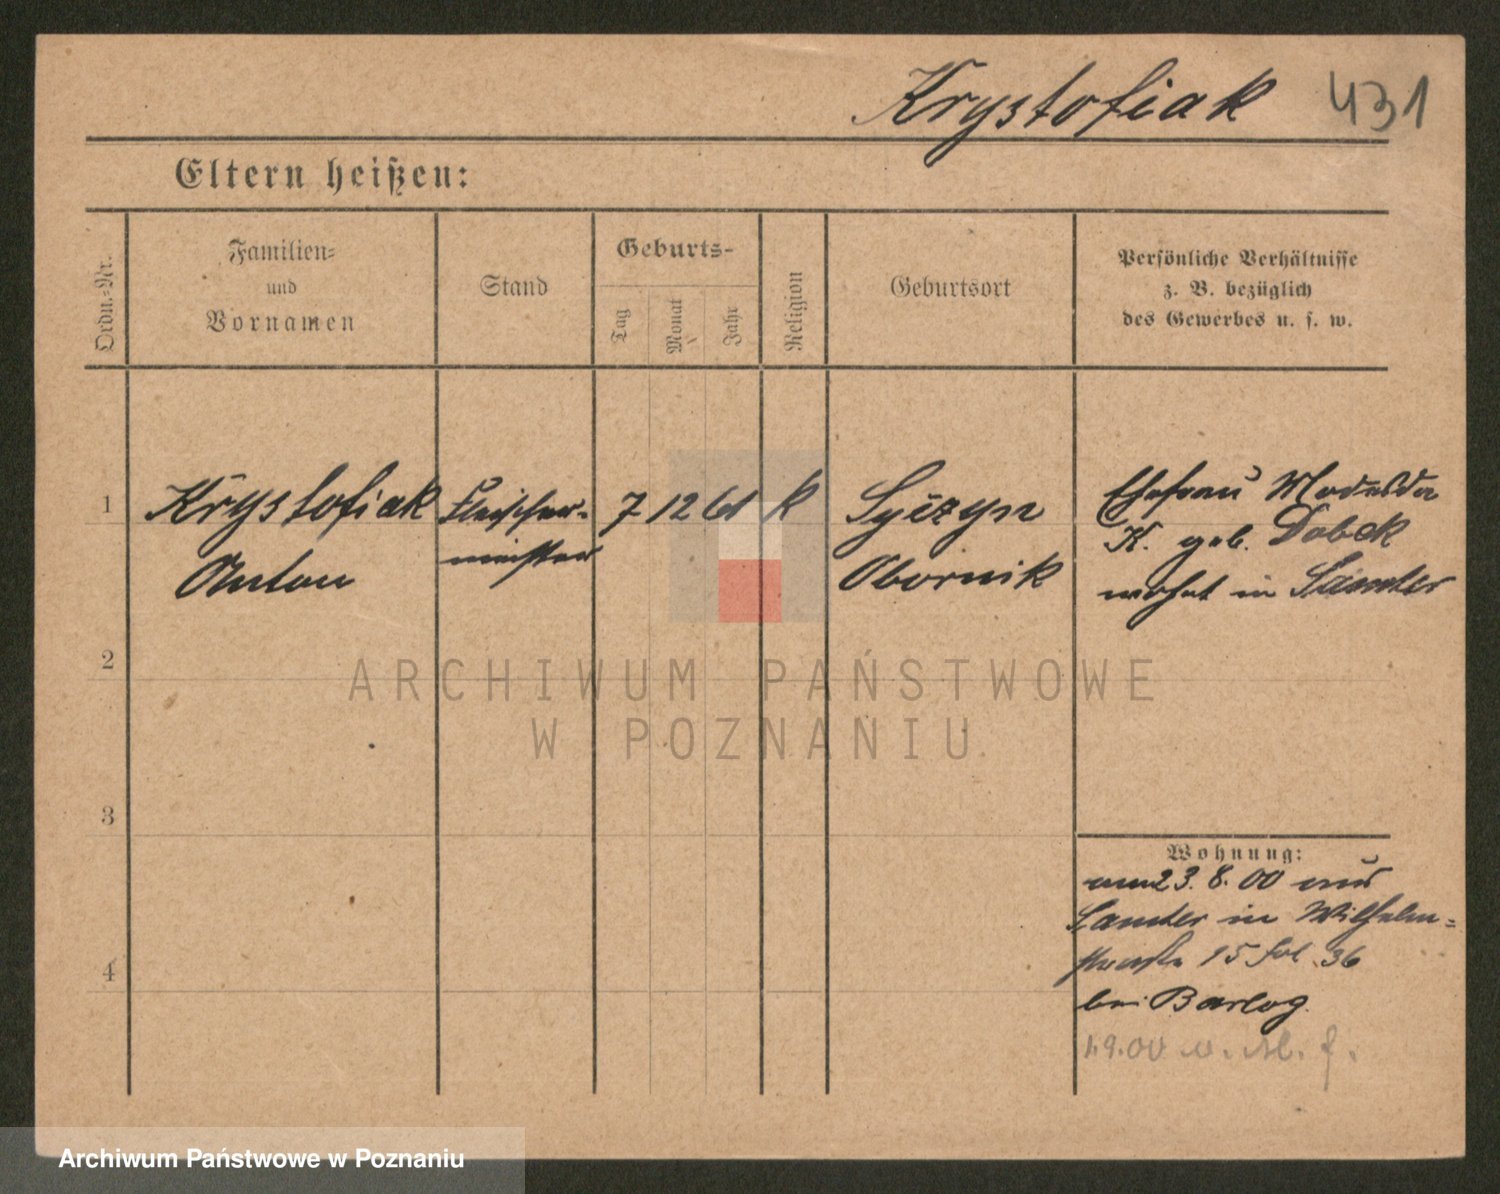 Krystofiak 431
Eltern heißen:
Ordn.-Nr.
Familien-
und
Vornamen
Stand
Geburts-
Tag
Monat
Jahr
Religion
Geburtsort
Persönliche Verhältnisse
z. B. bezüglich
des Gewerbes u. s. w.
1
Krystofiak
Anton
Fleischer-
meister
7 12 61
k
Obornik
Ehefrau
K. geb. Dobek
wohnt in Samter
2
3
4
Wohnung:
am 23. 8. 00 aus
Samter in Wilhelm-
15 36
bei Barlog
ARCHIWUM PAŃSTWOWE
W POZNANIU
Archiwum Państwowe w Poznaniu